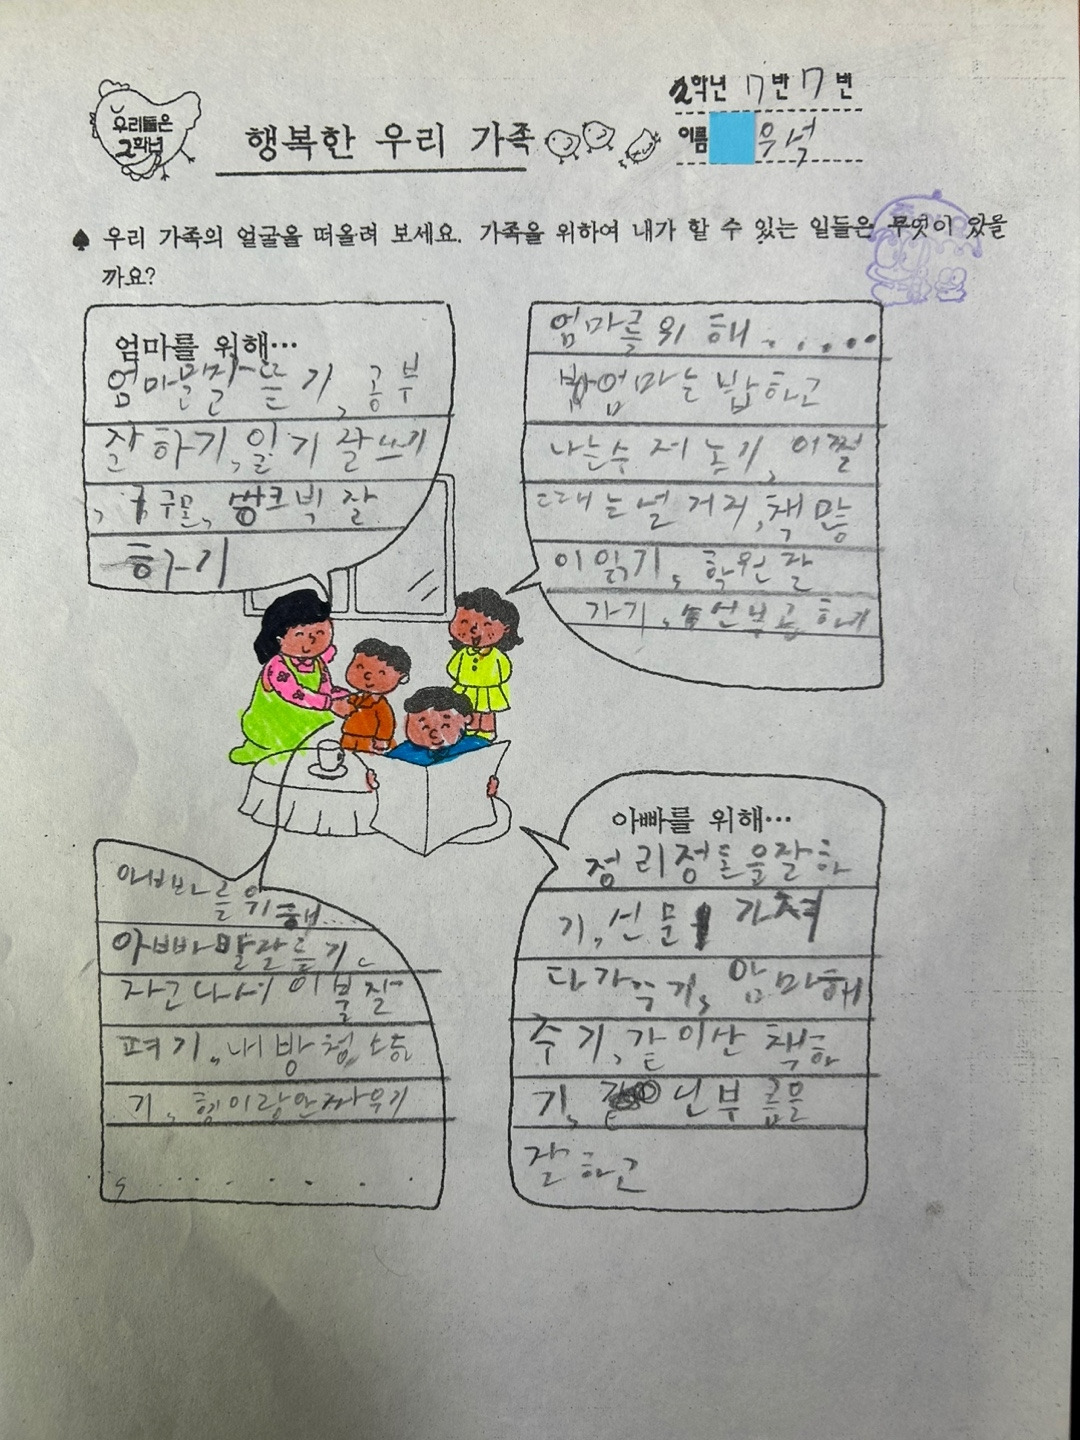 우리들은
2학년
행복한 우리 가족
2학년 7반 7번
이름 우석
♠ 우리 가족의 얼굴을 떠올려 보세요. 가족을 위하여 내가 할 수 있는 일들은 무엇이 있을
까요?
엄마를 위해…
엄마말잘 뜯기, 공부
잘 하기, 일기 잘쓰기
, 구몬, 씽크빅 잘
하기
엄마를 위해......
엄마는 밥하고
나는수저 놓기, 이쩔
때는널 거지, 책 많
이 읽기, 학원 잘
가기, 선부름 하기
아빠를 위해...
아빠말잘듣기,
자고나서 이불잘
펴기, 내방청소하
기, 형이랑안싸우기
아빠를 위해…
정리정돈을잘하
기, 신문 가져
다가주기, 암마해
주기, 같이산책하
기, 신부름을
잘하고